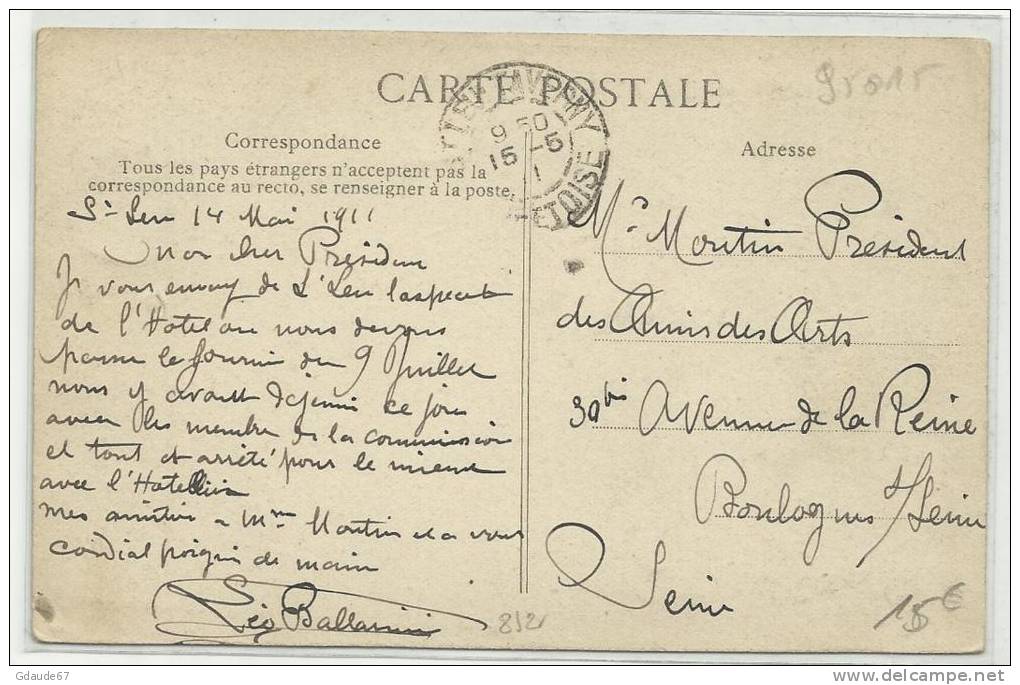 CARTE POSTALE
9r015
Correspondance
Tous les pays étrangers n'acceptent pas la
correspondance au recto, se renseigner à la poste.
TAVERNY
9 50
15 -5
TOISE
St Leu 14 Mai 1911
Mon cher Président
Je vous envoy de St Leu l'aspect
de l'Hotel ou nous devons
passer le journée du 9 Juillet
nous y avont dejeuné ce jour
avec les membre de la commission
et tout est arrêté pour le mieux
avec l'Hotellier
mes amitiés a Mme Moutin et a vous
cordial poigné de main
Léo Ballarini
Adresse
Mr Moutin Président
des Amis des Arts
30bis Avenue de la Reine
Boulogne s/Seine
Seine
8/2
15€
Gdaude67
delcampe.net